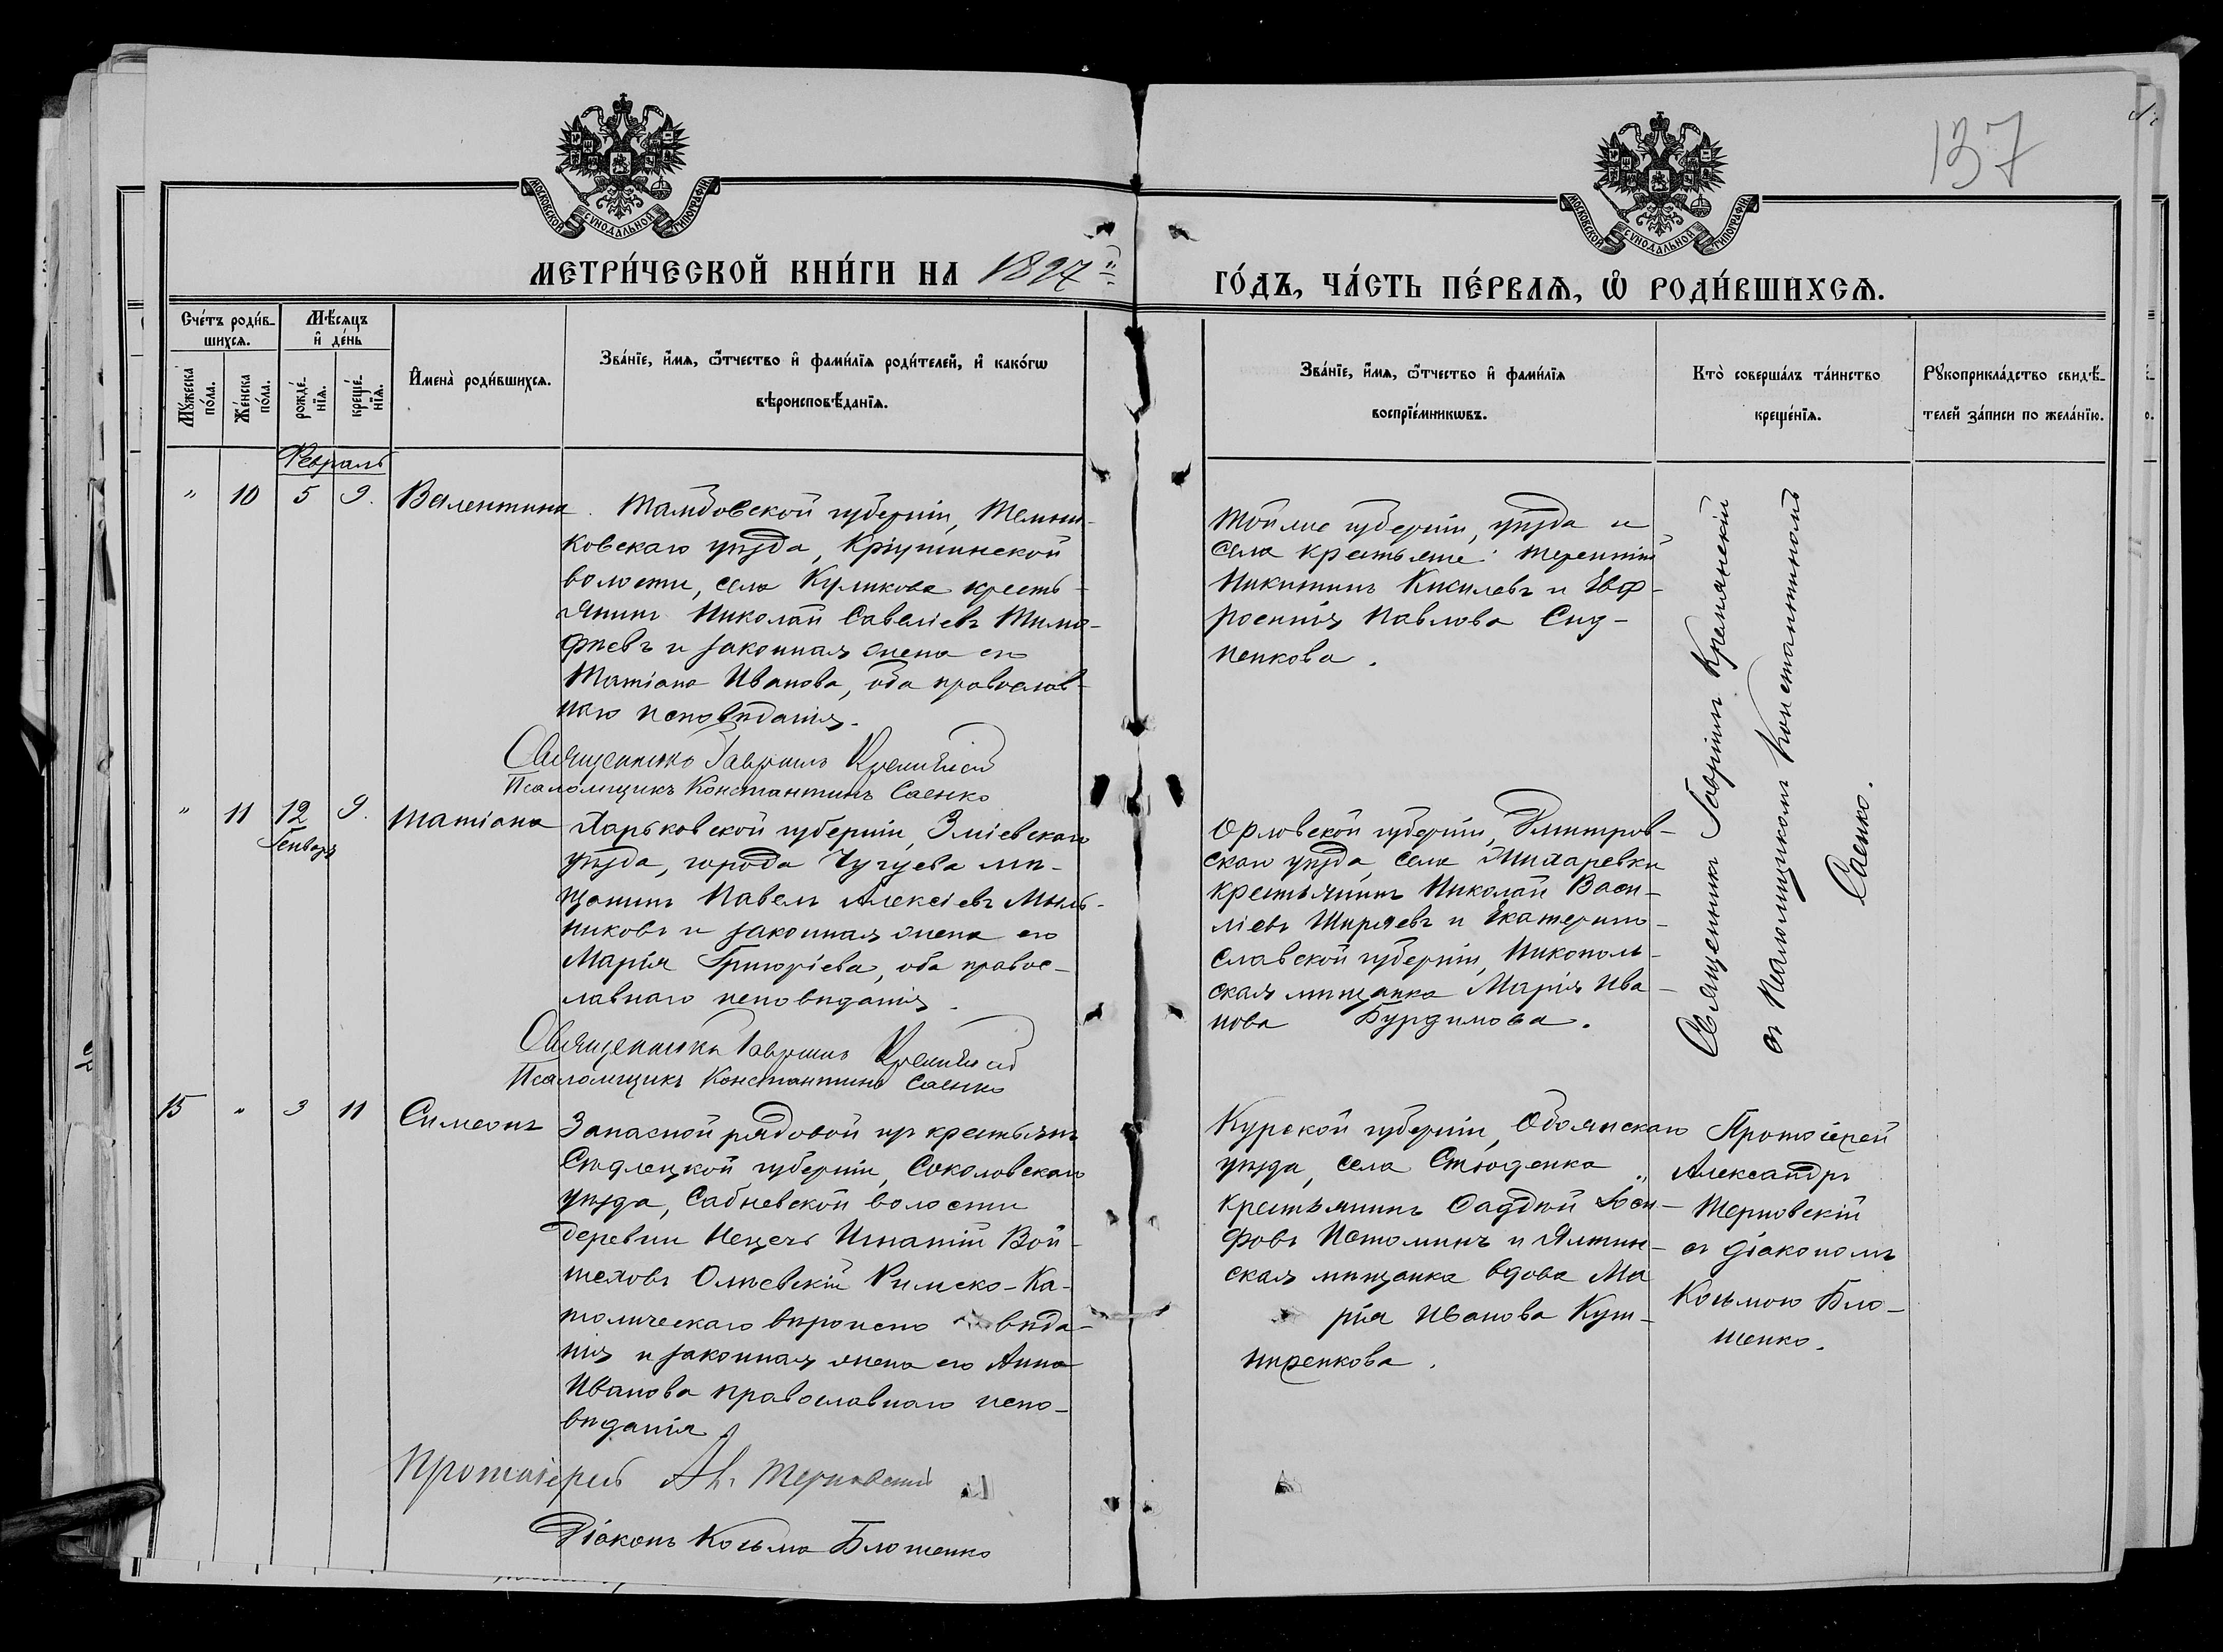 137
МОСКОВСКОЙ СѴНОДАЛЬНОЙ ТИПОГРАФІИ
МОСКОВСКОЙ СѴНОДАЛЬНОЙ ТИПОГРАФІИ
МЕТРИ́ЧЕСКОЙ КНИ́ГИ НА 1897 ГО́ДЪ, ЧА́СТЬ ПЕ́РВАѦ, Ѡ҆ РОДИ́ВШИХСѦ.
Сче́тъ роди́в-
шихсѧ.
Мѣ́сѧцъ
и҆ де́нь
Мꙋ́жеска
по́ла.
Же́нска
по́ла.
рожде́-
нїѧ.
креще́-
нїѧ.
И҆мена̀ роди́вшихсѧ.
Зва́нїе, и҆́мѧ, ѻ҆́тчество и҆ фами́лїѧ роди́телей, и҆ како́гѡ
вѣроисповѣ́данїѧ.
Зва́нїе, и҆́мѧ, ѻ҆́тчество и҆ фами́лїѧ
воспрїе́мникѡвъ.
Кто̀ соверша́лъ та́инство
креще́нїѧ.
Рꙋкоприкла́дство свидѣ́-
телей за́писи по жела́нїю.
Февраль
" 10 5 9. Валентина.
Тамбовской губерніи, Темни-
ковскаго уѣзда, Кріушинской
волости, села Куликова кресть-
янинъ Николай Савеліевъ Тимо-
фѣевъ и законная жена его
Татіана Иванова, оба православ-
наго исповѣданія.
Священникъ Гавріилъ
Псаломщикъ Константинъ Саенко
Тойже губерніи, уѣзда и
села крестьяне: Терентій
Никитинъ Киселевъ и Евф-
росинія Павлова
Священникъ Гавріилъ
съ Псаломщикомъ Константиномъ
Саенко.
" 11 12 9. Татіана
Генварь
Харьковской губерніи, Зміевскаго
уѣзда, города Чугуева мѣ-
щанинъ Павелъ Алексіевъ Мыль-
никовъ и законная жена его
Марія Григоріева, оба правос-
лавнаго исповѣданія.
Священникъ Гавріилъ
Псаломщикъ Константинъ Саенко
Орловской губерніи, Дмитров-
скаго уѣзда, села
крестьянинъ Николай Васи-
ліевъ Ширяевъ и Екатерино-
славской губерніи, Никополь-
ская мѣщанка Марія Ива-
нова Бурдимова.
15 " 3 11 Симеонъ
Запасной рядовой изъ крестьянъ
Сѣдлецкой губерніи, Соколовскаго
уѣзда, Сабневской волости
деревни Нецечъ Игнатій Вой-
теховъ Римско-Ка-
толическаго вѣроиспо вѣда-
нія и законная жена его Анна
Иванова православнаго испо-
вѣданія.
Протоіерей Ал. Терновскій
Діаконъ Косьма Блошенко
Курской губерніи, Обоянскаго
уѣзда, села Студенка
крестьянинъ Фаддей Іоси-
фовъ Истоминъ и Ялтин-
ская мѣщанка вдова Ма
рія Иванова Куш-
ниренкова.
Протоіерей
Александръ
Терновскій
съ діакономъ
Косьмою Бло-
шенко.